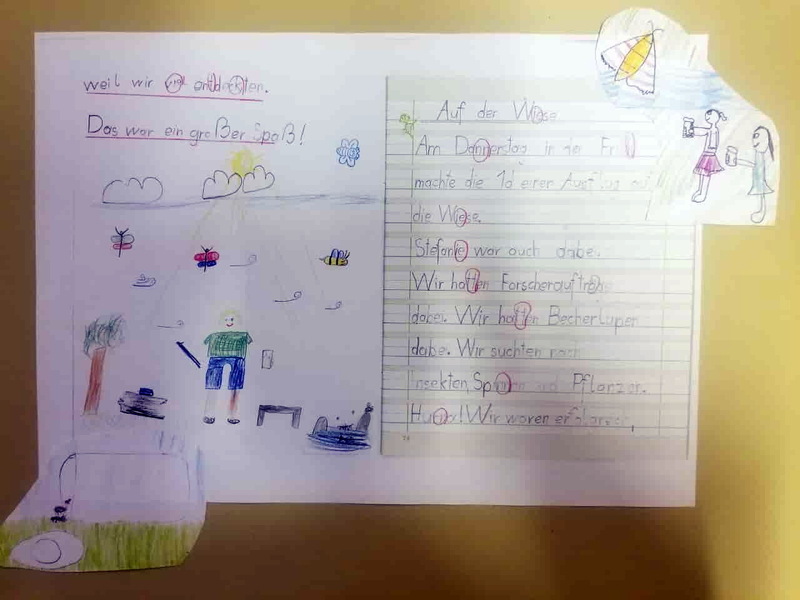 Auf der Wiese
Am Donnerstag in der
machte die 1d einen Ausflug auf
die Wiese.
Stefanie war auch dabei.
Wir hatten Forscheraufträge
dabei. Wir hatten Becherlupen
dabei. Wir suchten nach
Insekten, Spinnen und Pflanzen.
Hurra! Wir waren erfolgreich,
weil wir viel entdeckten.
Das war ein großer Spaß!